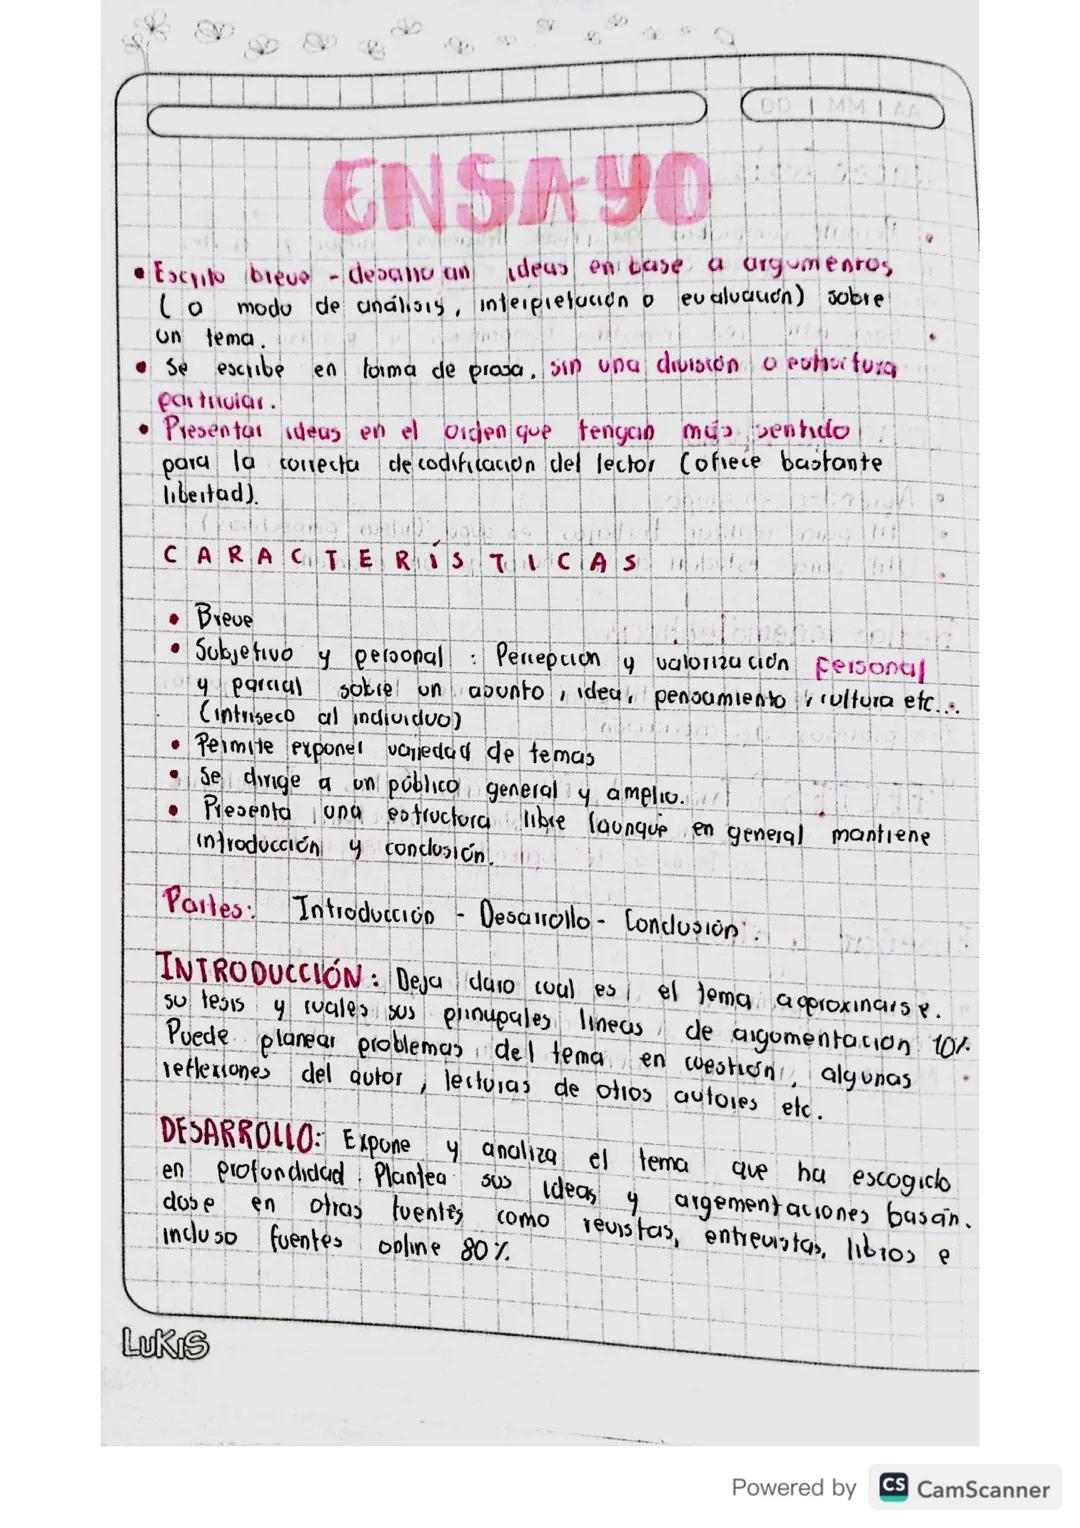 DD | MM | AA
ENSAYO
• Escrito breve - desarrollan ideas en base a argumentos,
( o modo de análisis, interpretación o evaluación) sobre
un tema.
• Se escribe en forma de prosa, sin una división o estructura
particular.
• Presentar ideas en el orden que tengan más sentido
para la correcta decodificación del lector (ofrece bastante
libertad).
CARACTERÍSTICAS
• Breve
• Subjetivo y personal : Percepción y valorización personal
y parcial sobre un asunto, idea, pensamiento, cultura etc...
(intriseco al individuo)
• Permite exponer variedad de temas
• Se dirige a un público general y amplio.
• Presenta una estructura libre (aunque en general mantiene
introducción y conclusión.
Partes: Introducción - Desarrollo - Conclusión.
INTRODUCCIÓN: Deja claro cual es el tema a aproximarse.
su tesis y cuales sus principales lineas de argumentación 10%
Puede planear problemas del tema en cuestión, algunas
reflexiones del autor, lecturas de otros autores etc.
DESARROLLO: Expone y analiza el tema que ha escogido
en profundidad. Plantea sus ideas y argementaciones basán.
dose en otras fuentes como revistas, entrevistas, libros e
incluso fuentes online 80%
LUKIS
Powered by CS CamScanner